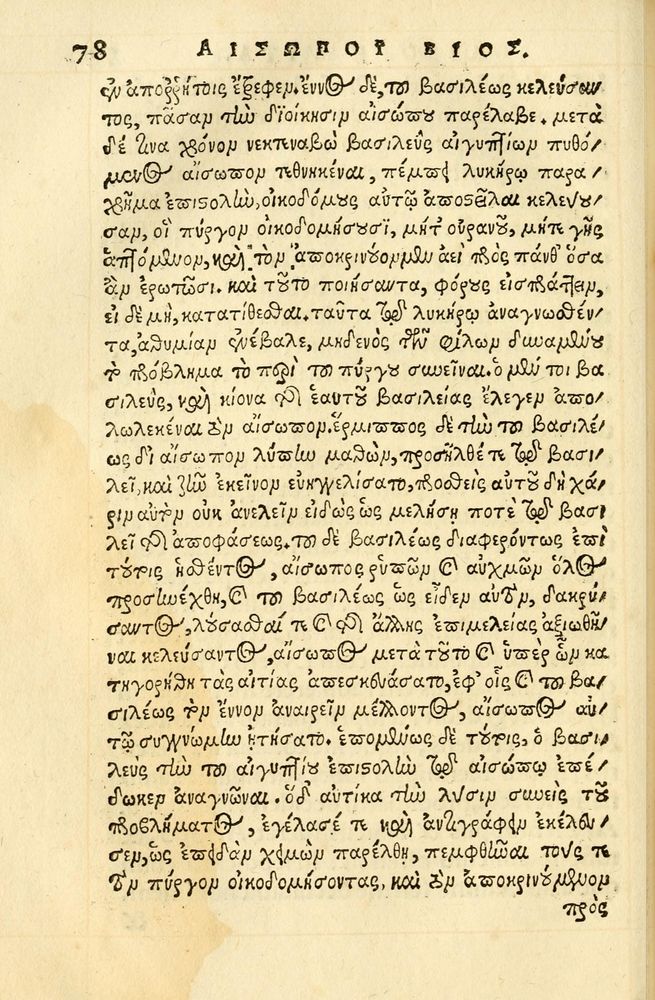 78 ΑΙΣΩΠΟΥ ΒΙΟΣ.
ἐν ἀποῤῥήτοις ἔτρεφεν. ἔννος δὲ, τοῦ βασιλέως κελεύσαν
τος, πᾶσαν τὴν διοίκησιν αἰσώπου παρέλαβε. μετὰ
δέ τινα χρόνον νεκτεναβὼ βασιλεὺς αἰγυπτίων πυθό/
μενος αἴσωπον τεθνηκέναι, πέμπει λυκήρῳ παρα/
χρῆμα ἐπιστολὴν, οἰκοδόμους αὐτῷ ἀποστεῖλαι κελεύου/
σαν, οἳ πύργον οἰκοδομήσουσι, μήτ' οὐρανοῦ, μήτε γῆς
ἁπτόμενον, καὶ τὸν ἀποκρινούμενον ἀεὶ πρὸς πάνθ' ὅσα
ἂν ἐρωτῶσι. καὶ τοῦτο ποιήσαντα, φόρους εἰσπράττειν,
εἰ δὲ μὴ, κατατίθεσθαι. ταῦτα τῷ λυκήρῳ ἀναγνωσθέν/
τα, ἀθυμίαν ἐνέβαλε, μηδενὸς τῶν φίλων δυναμένου
τὸ πρόβλημα τὸ περὶ τοῦ πύργου συνεῖναι. ὁ μέν τοι βα
σιλεὺς, καὶ κίονα τῆς ἑαυτοῦ βασιλείας ἔλεγεν ἀπο/
λωλεκέναι τὸν αἴσωπον. ἕρμιππος δὲ τὴν τοῦ βασιλέ/
ως δι' αἴσωπον λύπην μαθὼν, προσῆλθέ τε τῷ βασι/
λεῖ, καὶ ζῆν ἐκεῖνον εὐηγγελίσατο, προσθεὶς αὐτοῦ δὴ χά/
ριν αὐτὸν οὐκ ἀνελεῖν εἰδὼς ὡς μελήσῃ ποτὲ τῷ βασι
λεῖ τῆς ἀποφάσεως. τοῦ δὲ βασιλέως διαφερόντως ἐπὶ
τούτοις ἡσθέντος, αἴσωπος ῥυπῶν καὶ αὐχμῶν ὅλος
προσηνέχθη, καὶ τοῦ βασιλέως ὡς εἶδεν αὐτὸν, δακρύ/
σαντος, λούσασθαί τε καὶ τῆς ἄλλης ἐπιμελείας ἀξιωθῆ/
ναι κελεύσαντος, αἴσωπος μετὰ τοῦτο καὶ ὑπὲρ ὧν κα
τηγορήθη τὰς αἰτίας ἀπεσκευάσατο, ἐφ' οἷς καὶ τοῦ βα/
σιλέως τὸν ἔννον ἀναιρεῖν μέλλοντος, αἴσωπος αὐ/
τῷ συγγνώμην ᾐτήσατο. ἑπομένως δὲ τούτοις, ὁ βασι/
λεὺς τὴν τοῦ αἰγυπτίου ἐπιστολὴν τῷ αἰσώπῳ ἐπέ/
δωκεν ἀναγνῶναι. ὁ δ' αὐτίκα τὴν λύσιν συνεὶς τοῦ
προβλήματος, ἐγέλασέ τε καὶ ἀντιγράφειν ἐκέλευ/
σεν, ὡς ἐπειδὰν χειμὼν παρέλθῃ, πεμφθῆναι τούς τε
τὸν πύργον οἰκοδομήσοντας, καὶ τὸν ἀποκρινούμενον
πρὸς